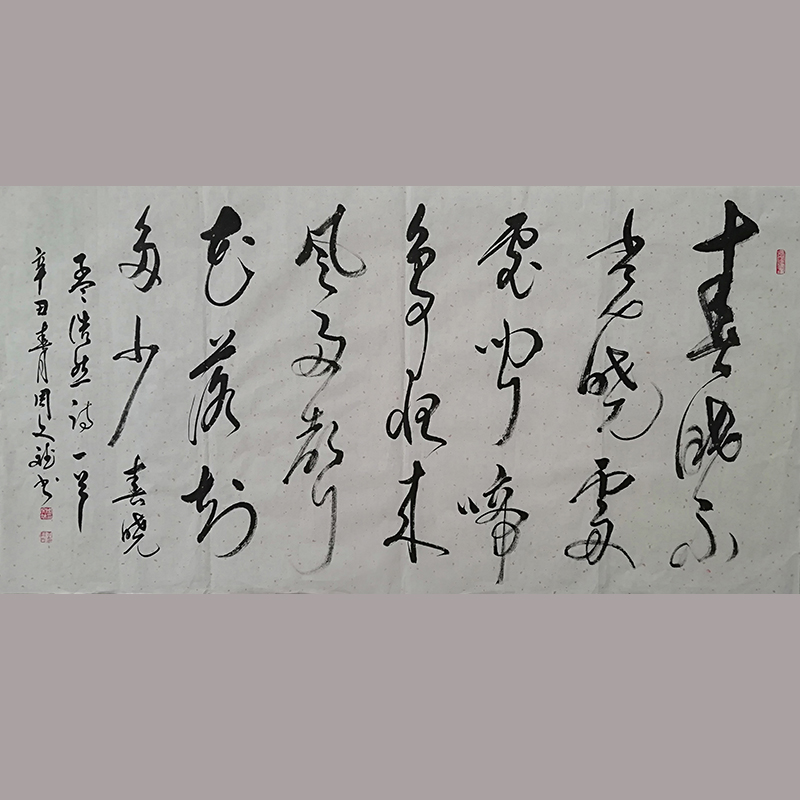 春眠不
觉晓處
處闻啼
鸟夜来
风雨声
花落知
多少 春晓
孟浩然诗一首
辛丑春月周文书